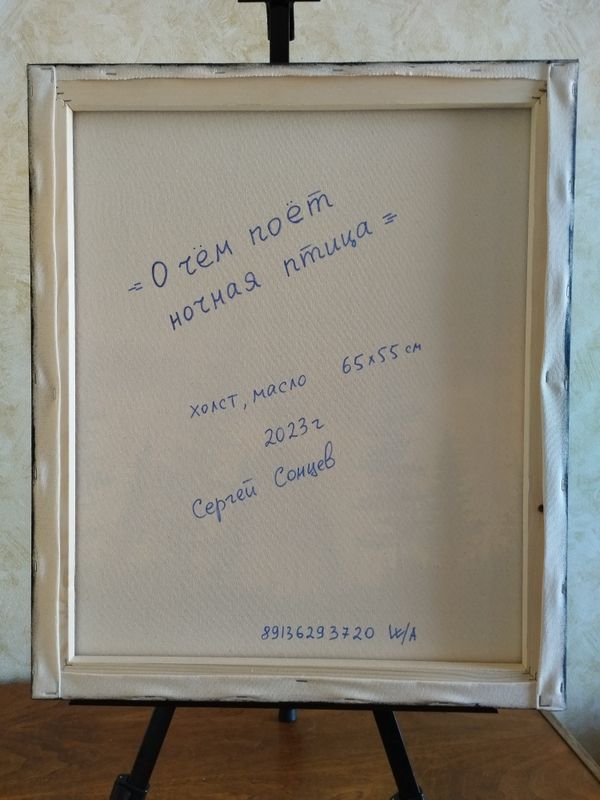 = О чём поёт
ночная птица =
холст, масло 65х55 см
2023г
Сергей Сонцев
89136293720 W/A